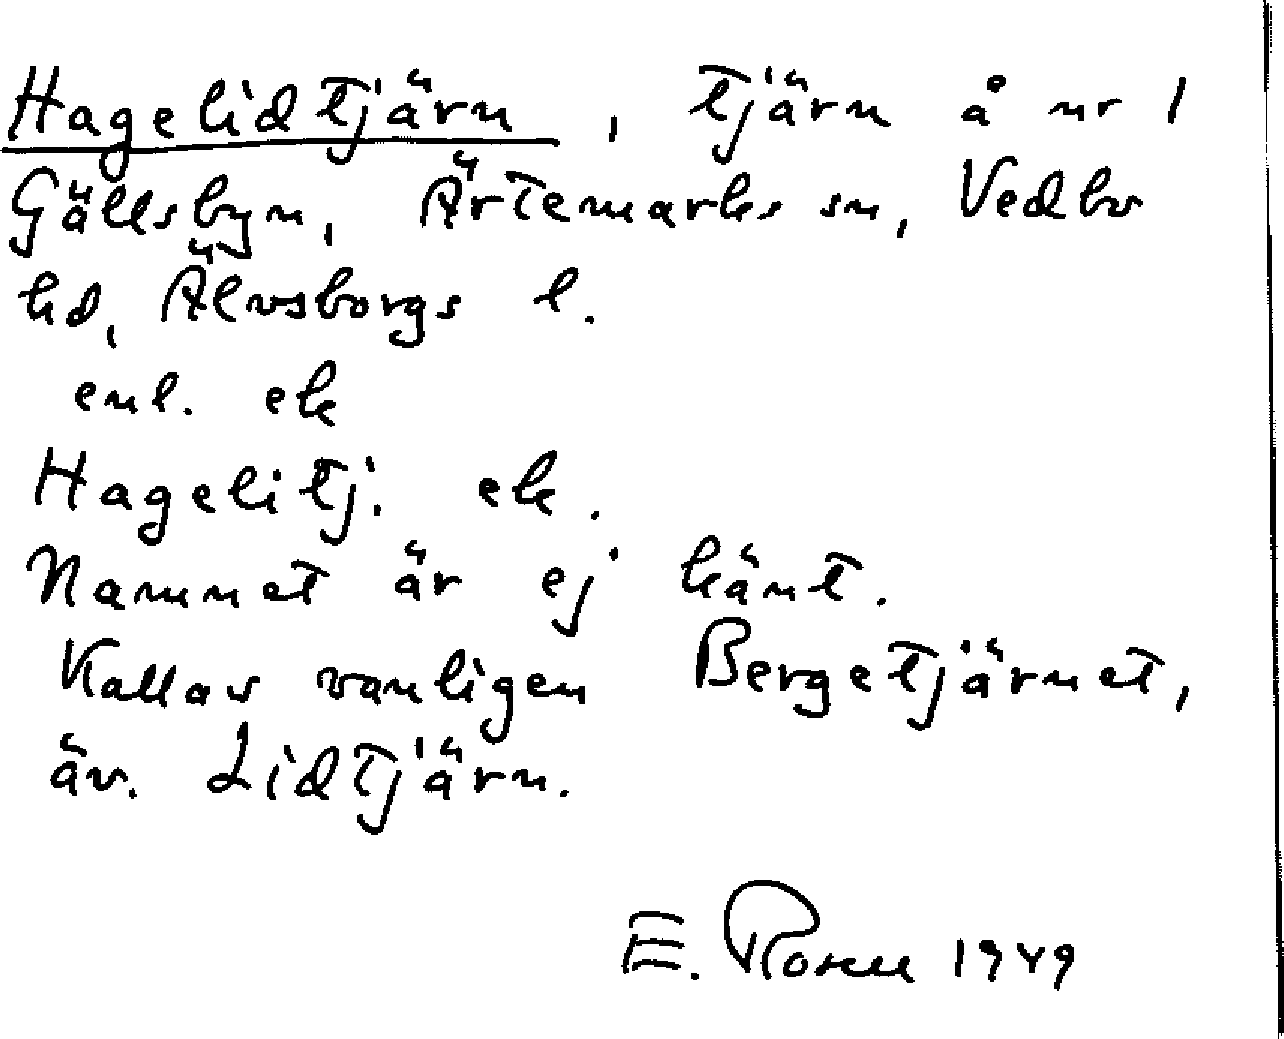 Hagelidtjärn, tjärn å nr 1
Gällsbyn, Ärtemarks sn, Vedbo
hd, Älvsborgs l.
enl. ek
Hagelitj. ek.
Namnet är ej känt.
Kallas vanligen Bergetjärnet,
äv. Lidtjärn.
E. Rosen 1949